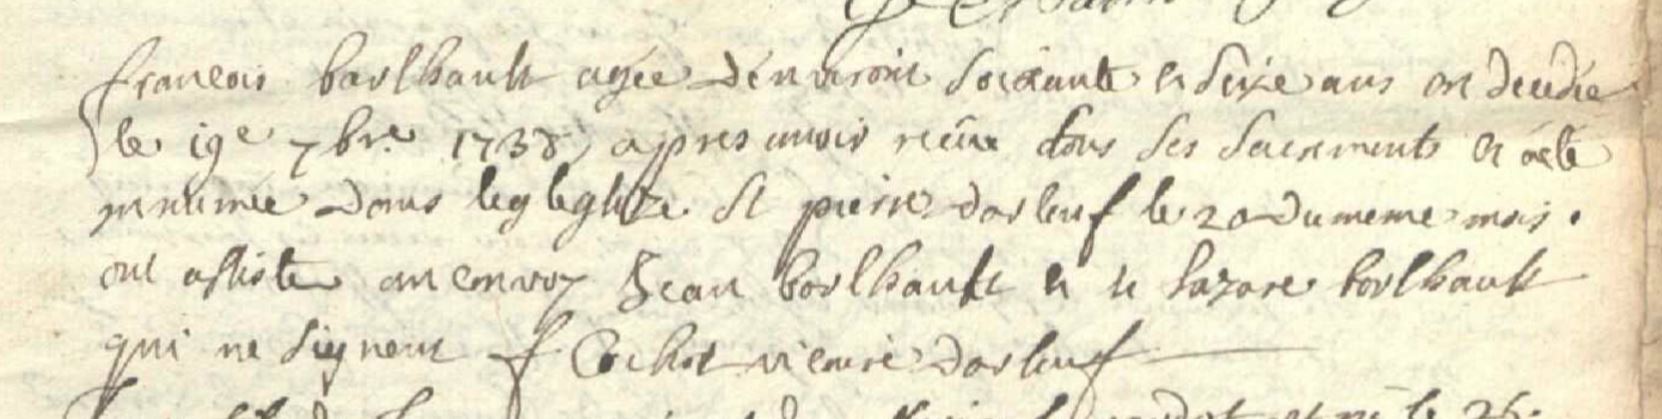 francois barlhault agée denviront soixante et seize ans est decedée
le 19e 7bre 1738 apres avoir reçüe tous ses sacrements et a eté
inhumée dans legleglize St pierre darleuf le 20 du meme mois .
ont assisté au convoy Jean barlhault et Lazare barlhault
qui ne signent f Cochet vicaire darleuf